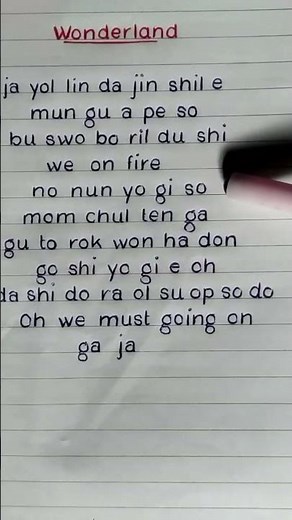 Wonderland
ja yol lin da jin shil e
mun gu a pe so
bu swo bo ril du shi
we on fire
no nun yo gi so
mom chul ten ga
gu to rok won ha don
go shi yo gi e oh
da shi do ra ol su op so do
Oh we must going on
ga ja